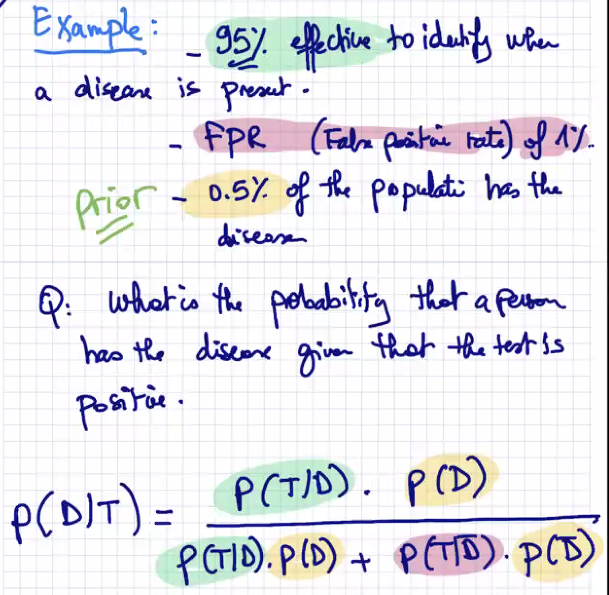 Example: - 95% effective to identify when
a disease is present.
- FPR (False positive rate) of 1%.
Prior - 0.5% of the populati has the
disease
Q: What is the probability that a person
has the disease given that the test is
positive.
P(D|T) = P(T|D) . P(D)
P(T|D) . P(D) + P(T|D̅) . P(D̅)